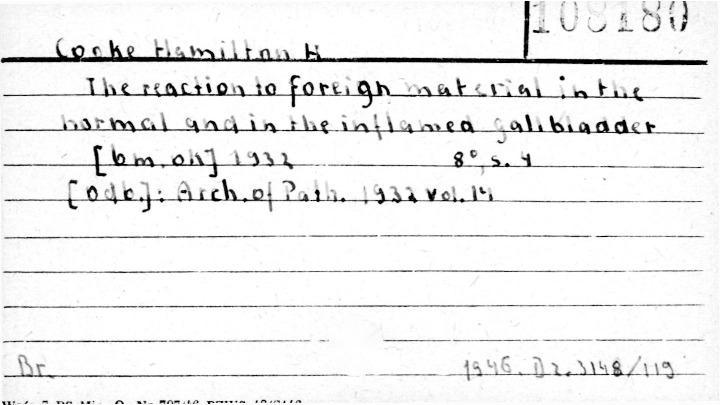 108180
Cooke Hamilton H
The reaction to foreign material in the
normal and in the inflamed gallbladder
[bm. ok] 1932 8°, s. 4
[Odb.]: Arch. of Path. 1932 vol. 14
Br. 1946. Dz. 3148/119